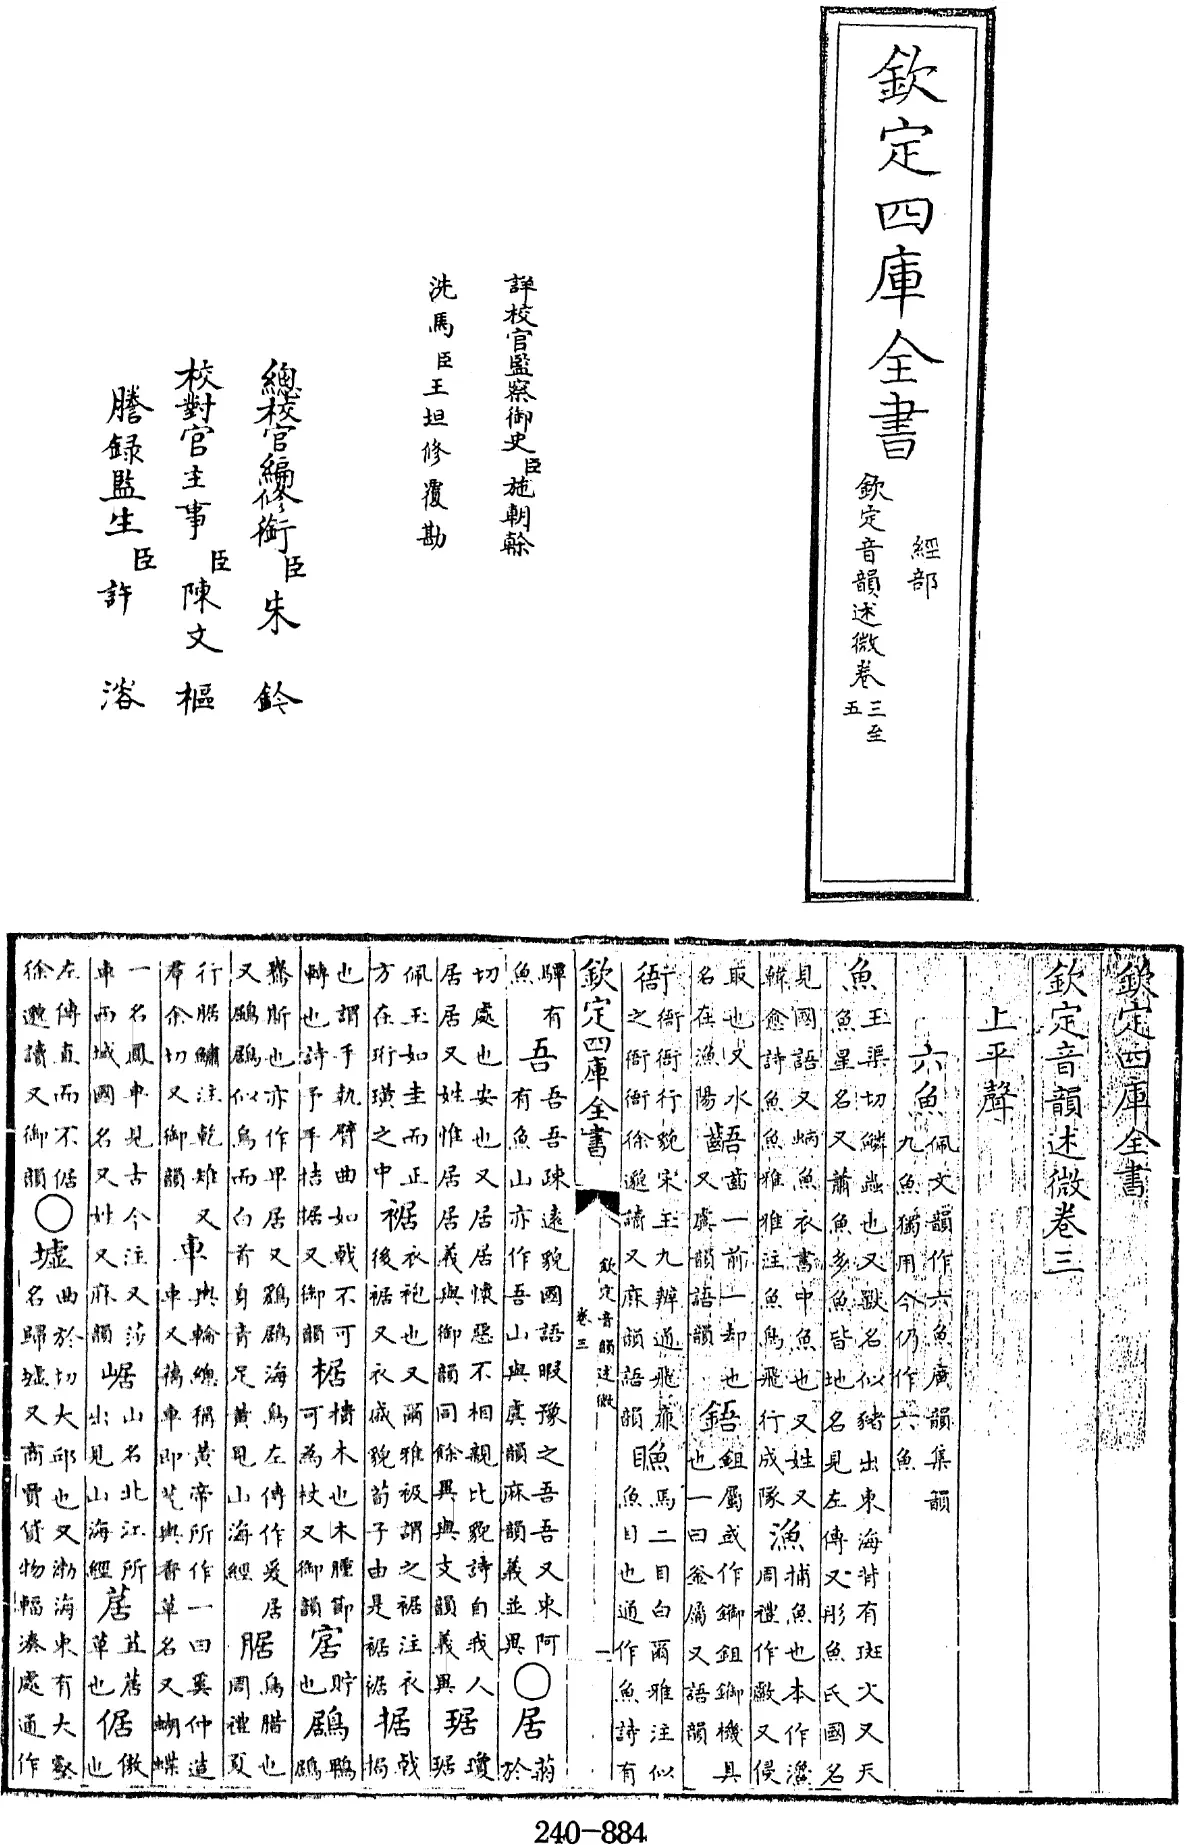 欽定四庫全書
經部
欽定音韻述微卷三至五
詳校官監察御史臣施朝榦
洗馬臣王坦修覆勘
總校官編修銜臣朱鈐
校對官主事臣陳文樞
謄録監生臣許溶
欽定四庫全書
欽定音韻述微卷三
上平聲
六魚佩文韻作六魚廣韻集韻九魚獨用今仍作六魚
魚玉渠切鱗蟲也又獸名似豬出東海背有斑文又天魚星名又蕭魚多魚皆地名見左傳又彤魚氏國名
見國語又蛃魚衣書中魚也又姓又韓愈詩魚魚雅雅注魚鳥飛行成隊漁捕魚也本作𩼪周禮作䱷又侵
取也又水名在漁陽齬齒一前一却也又虞韻語韻鋙鉏屬或作鋤鉏鋤機具也一曰釜屬又語韻
衙衙衙行貌宋玉九辯通飛廉之衙衙徐邈讀又麻韻語韻䁩馬二目白爾雅注似魚目也通作魚詩有
欽定四庫全書
欽定音韻述微
卷三
一
驒有魚吾吾吾疎遠貌國語暇豫之吾吾又東阿有魚山亦作吾山與虞韻麻韻義並異○居菊於
切處也安也又居居懷惡不相親比貌詩自我人居居又姓惟居居義與御韻同餘異與支韻義異琚瓊琚
佩玉如圭而正方在珩璜之中裾衣袍也又爾雅衱謂之裾注衣後裾又衣盛貌荀子由是裾裾据戟挶
也謂手執臂曲如戟不可轉也詩予手拮据又御韻椐樻木也木腫節可為杖又御韻㝒貯也鶋鴨鶋
鸒斯也亦作卑居又鶢鶋海鳥左傳作爰居又鷵鶋似烏而白首身青足黃見山海經腒鳥腊也周禮夏
行腒鱐注乾雉又羣余切又御韻車輿輪總稱黃帝所作一曰奚仲造車又藒車即芞輿香草名又蝴蝶
一名鳳車見古今注又莎車西域國名又姓又麻韻崌山名北江所出見山海經草也倨傲也
左傳直而不倨徐邈讀又御韻○墟曲於切大邱也又渤海東有大壑名歸墟又商賈貨物輻湊處通作
240-884